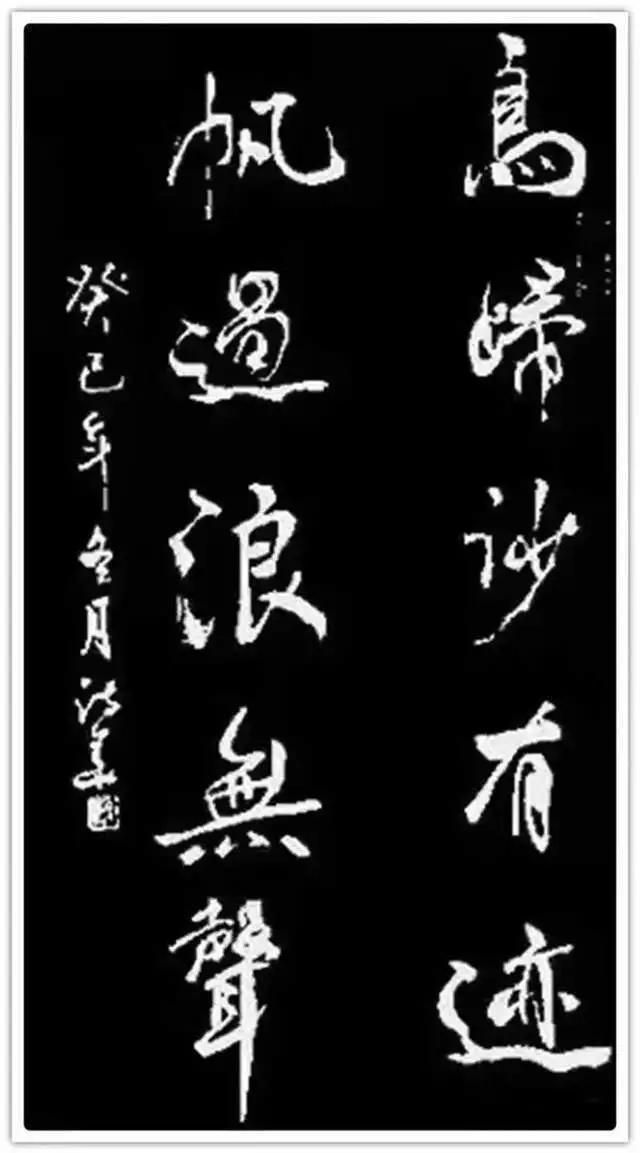 鳥歸沙有迹
帆過浪無聲
癸巳年冬月